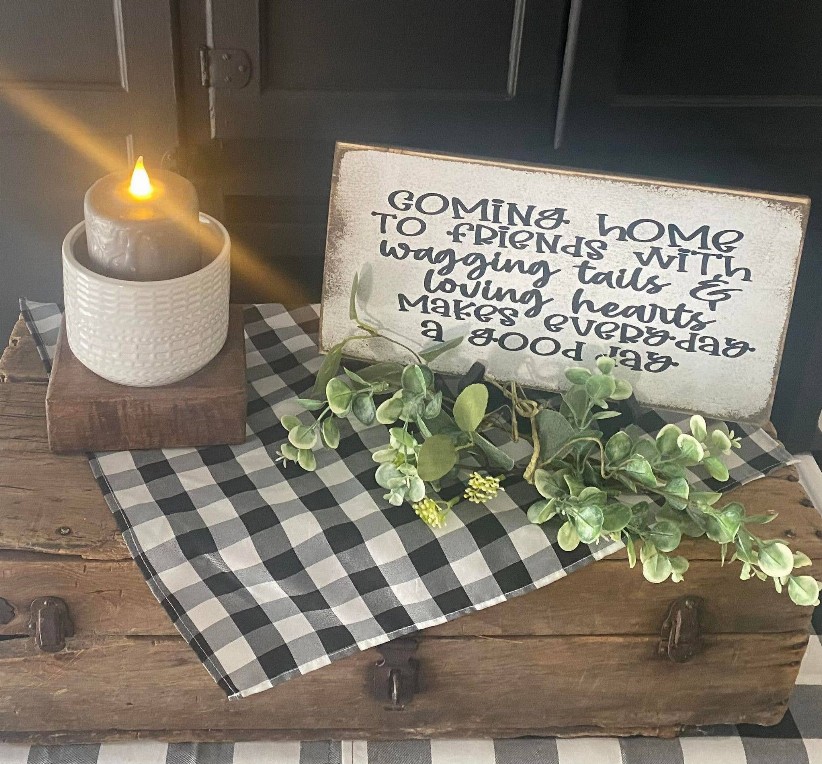 COMING hOME
TO fRIENdS WITh
wagging tails &
loving hearts
MAKES EVERYdAY
a gOOd day